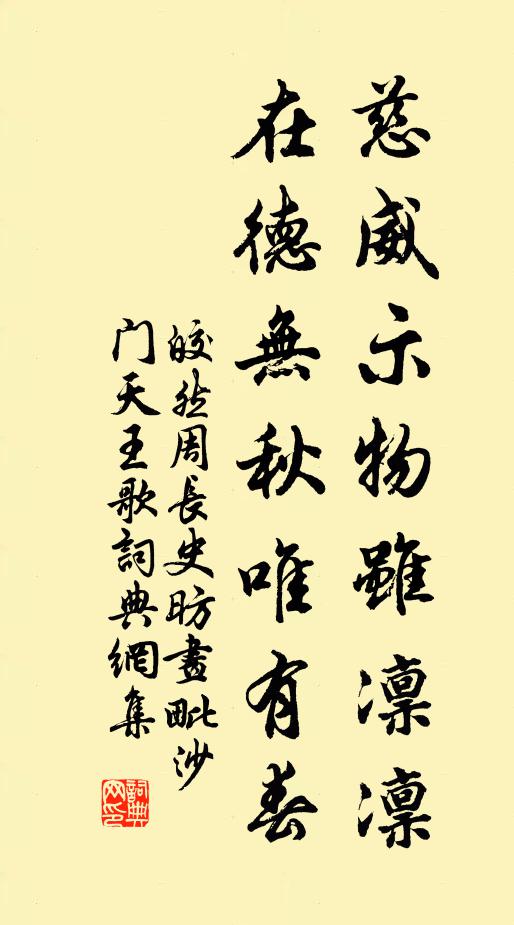 慈威示物雖凛凛
在德無秋唯有春
皎然周長史昉畫毗沙
门天王歌詞典網集
詞典
网印